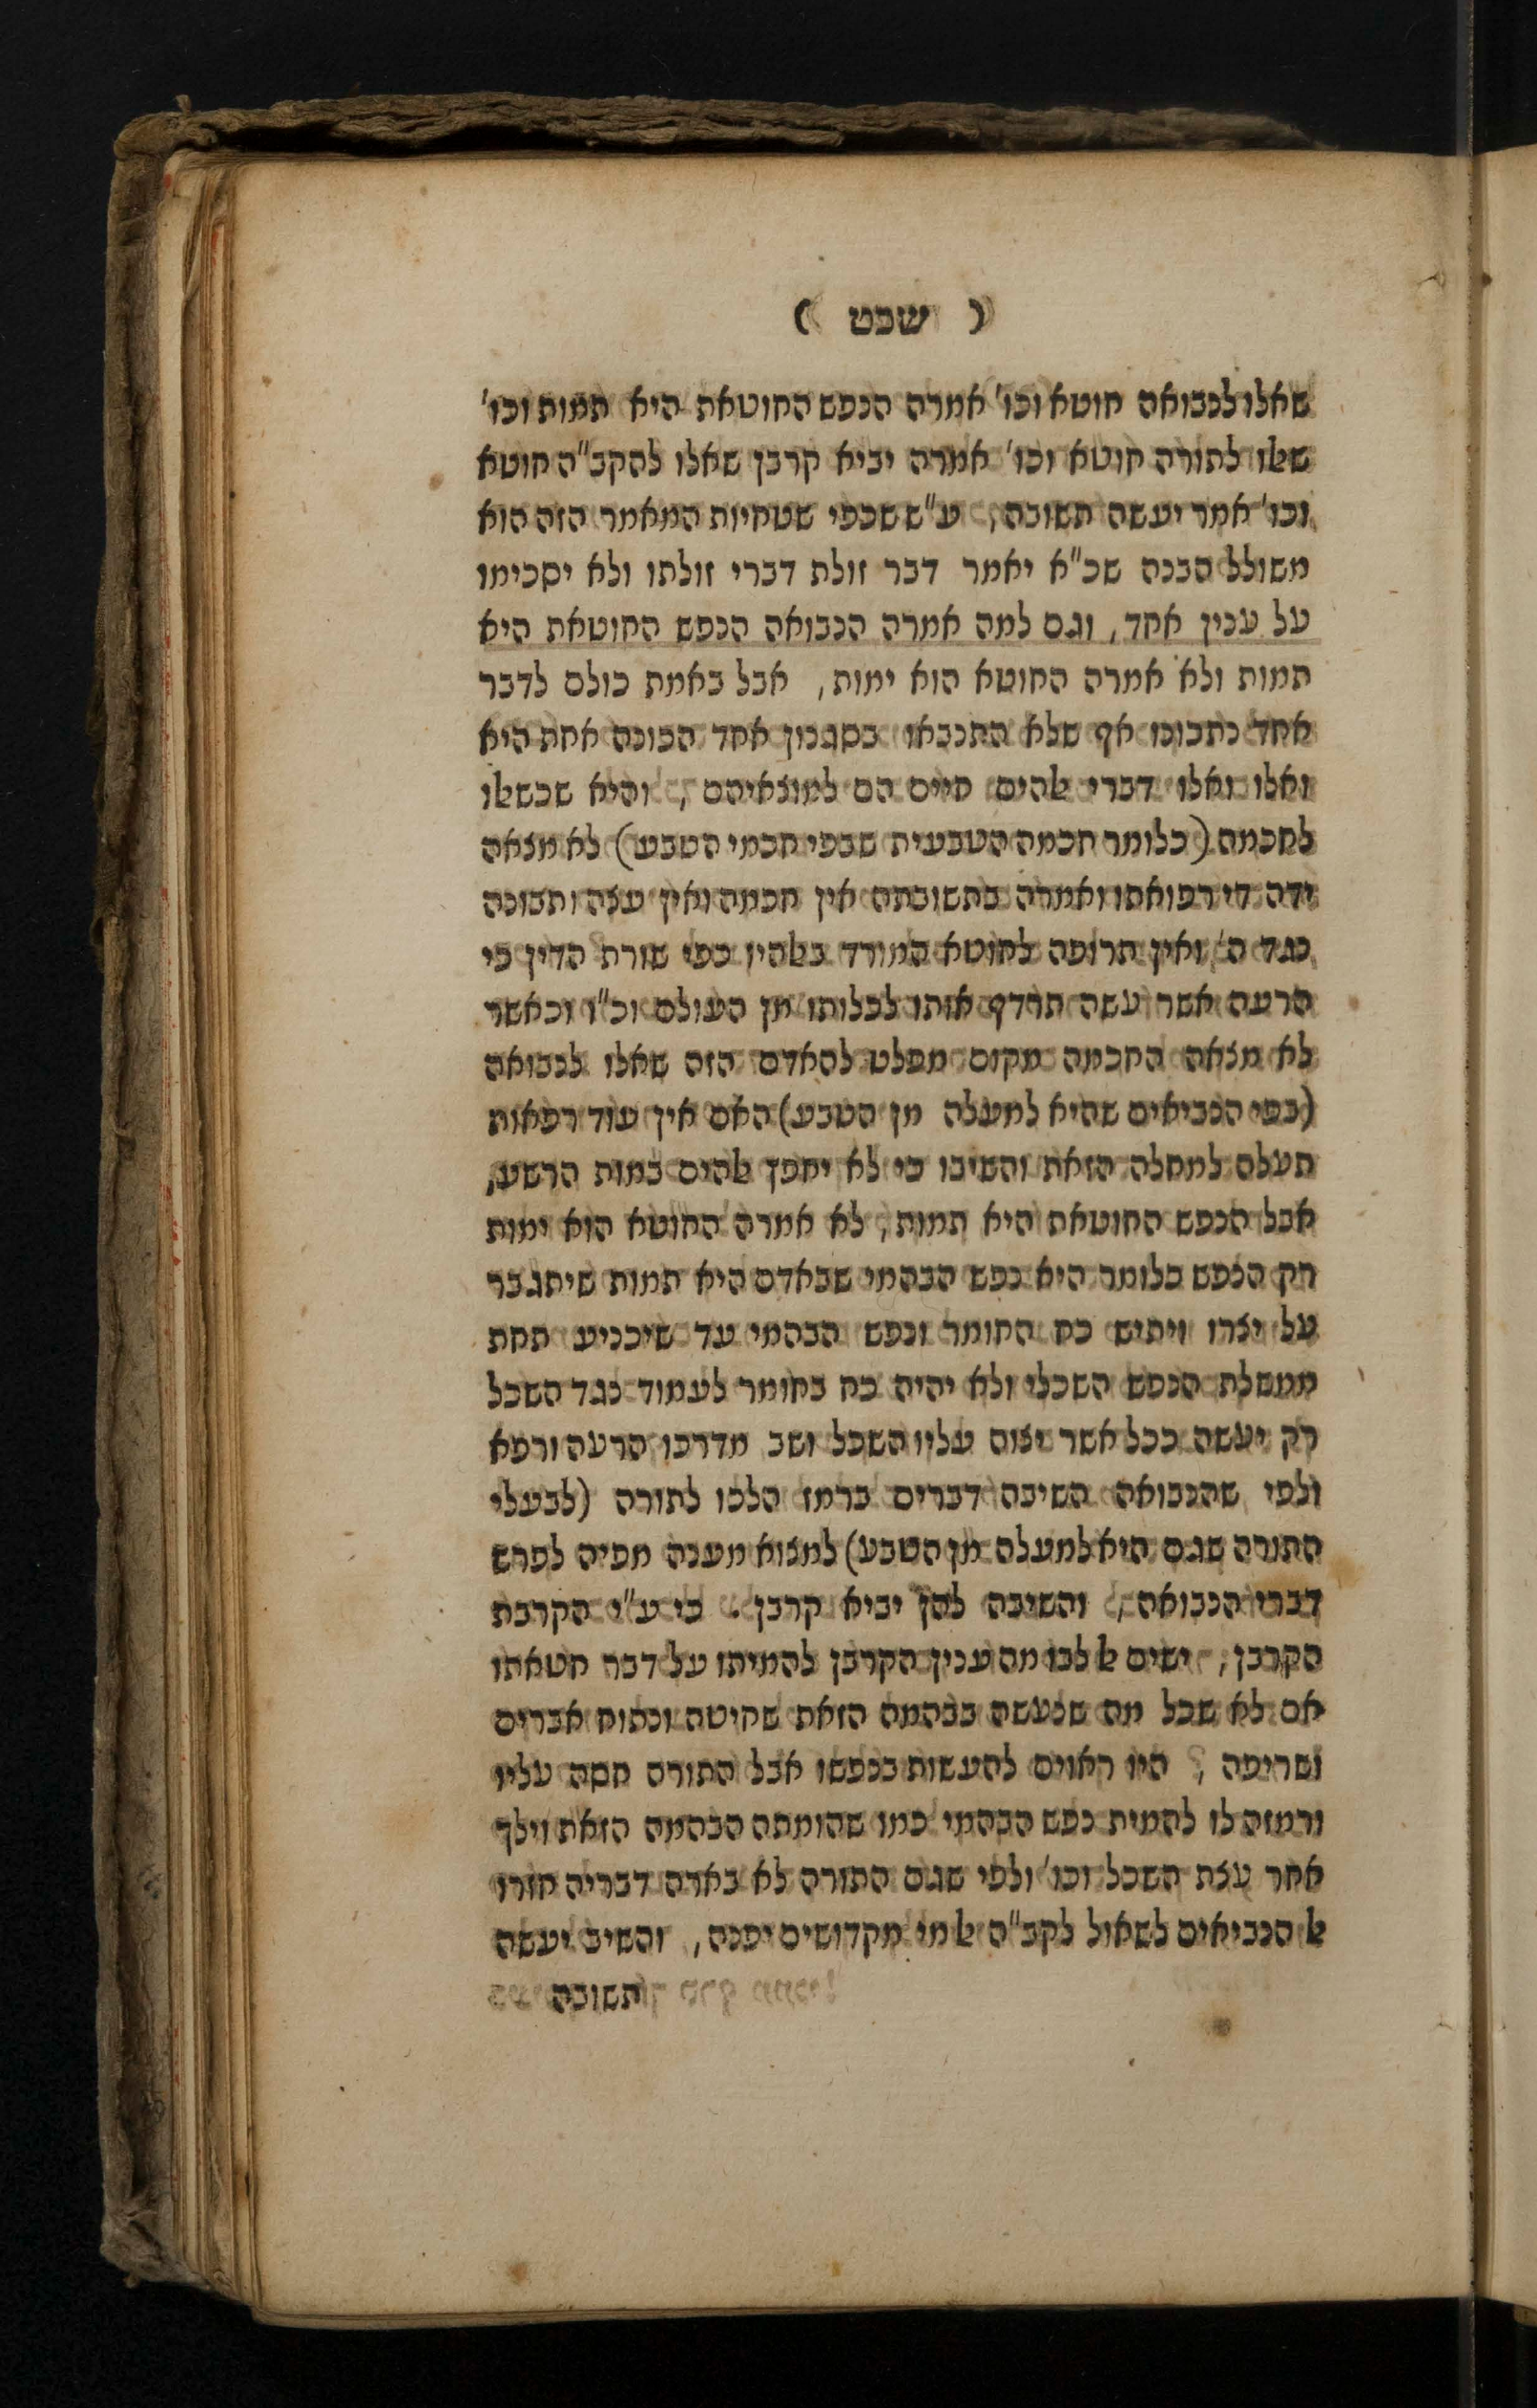 ( שבט )
שאלו לנבואה חוטא וכו' אמרה הנפש החוטאת היא תמות וכו'
שאלו לתורה חוטא וכו' אמרה יביא קרבן שאלו להקב"ה חוטא
וכו' אמר יעשה תשובה, ע"ש שכפי שטחיות המאמר הזה הוא
משולל הבנה שכ"א יאמר דבר זולת דברי זולתו ולא יסכימו
על ענין אחד, וגם למה אמרה הנבואה הנפש החוטאת היא
תמות ולא אמרה החוטא הוא ימות, אבל באמת כולם לדבר
אחד נתכונו אף שלא התנבאו בסגנון אחד הכונה אחת היא
ואלו ואלו דברי אלהים חיים הם למוצאיהם, והיא שכשאלו
לחכמה (כלומר חכמה הטבעית שבפי חכמי הטבע) לא מצאה
ידה די רפואתו ואמרה בתשובתה אין חכמה ואין עצה ותבונה
נגד ה' ואין תרופה לחוטא המורד באלהיו כפי שורת הדין כי
הרעה אשר עשה תרדף אותו לכלותו מן העולם וכ"ו וכאשר
לא מצאה החכמה מקום מפלט להאדם הזה שאלו לנבואה
(בפי הנביאים שהיא למעלה מן הטבע) האם אין עוד רפאות
תעלה למחלה הזאת והשיבו כי לא יחפץ אלהים במות הרשע,
אבל הנפש החוטאת היא תמות, לא אמרה החוטא הוא ימות
רק הנפש כלומר היא נפש הבהמי שבאדם היא תמות שיתגבר
על יצרו ויתיש כח החומר ונפש הבהמי עד שיכניע תחת
ממשלת הנפש השכלי ולא יהיה כח בחומר לעמוד נגד השכל
רק יעשה ככל אשר יצוה עליו השכל ושב מדרכו הרעה ורפא
ולפי שהנבואה השיבה דברים ברמז הלכו לתורה (לבעלי
התורה שגם היא למעלה מן הטבע) למצוא מענה מפיה לפרש
דברי הנבואה, והשיבה להן יביא קרבן . כי ע"י הקרבת
הקרבן, ישים אל לבו מה ענין הקרבן להמיתו על דבר חטאתו
אם לא שכל מה שנעשה בבהמה הזאת שחיטה ונתוח אברים
ושריפה, היו ראוים להעשות בנפשו אבל התורה חסה עליו
ורמזה לו להמית נפש הבהמי כמו שהומתה הבהמה הזאת וילך
אחר עצת השכל וכו' ולפי שגם התורה לא בארה דבריה חזרו
אל הנביאים לשאול לקב"ה אל מי מקדושים יפנה, והשיב יעשה
תשובה